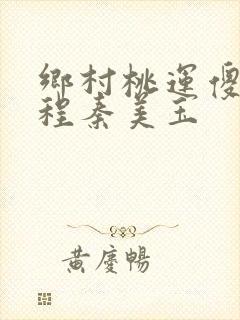 鄉村桃運傻
程秦美玉
黃慶暢